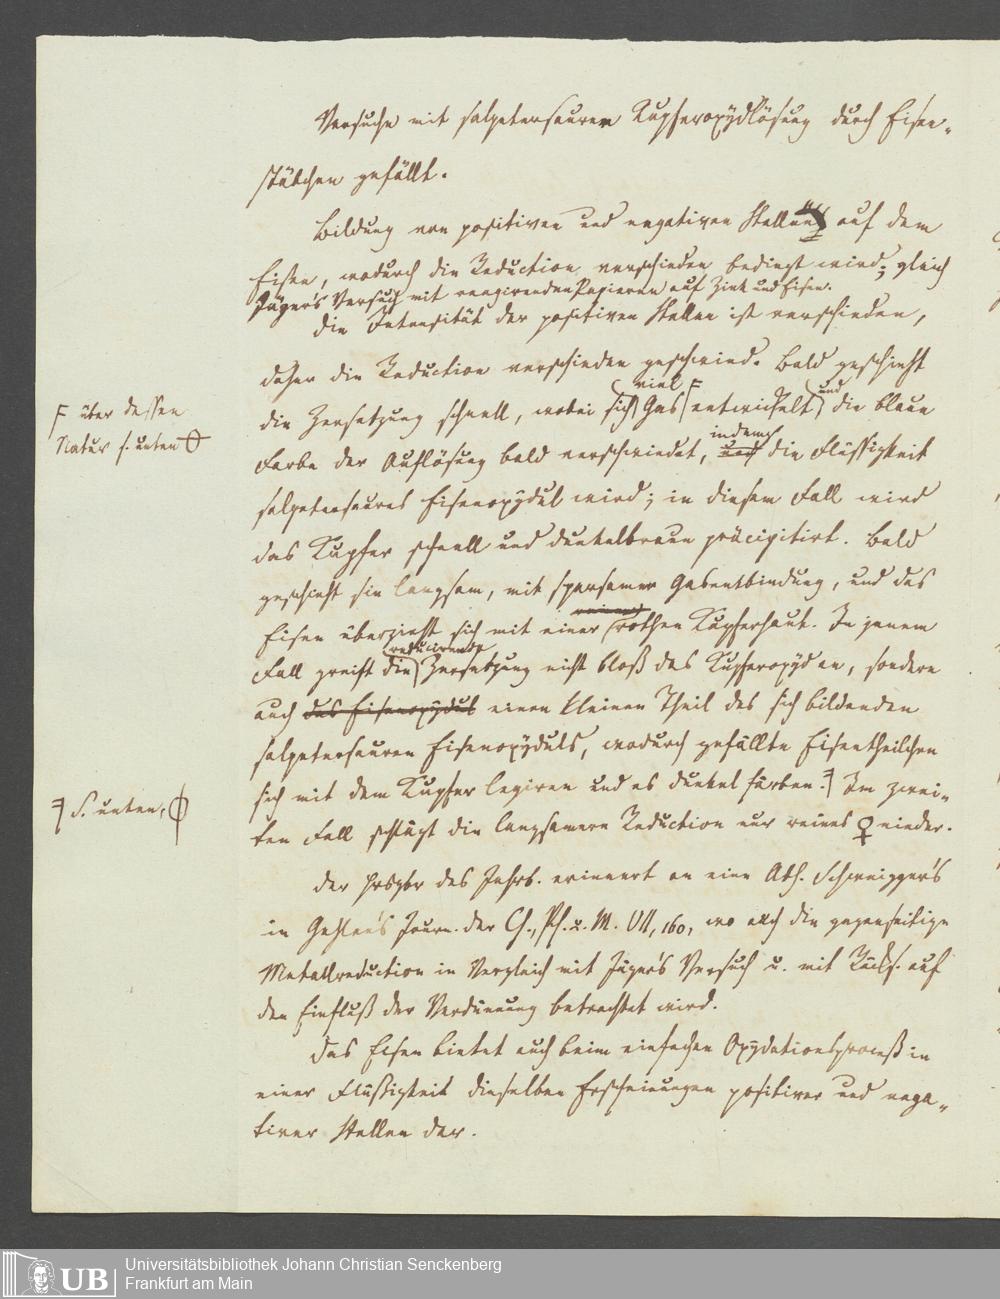 Versuche mit salpetersaurer Kupferoxydlösung durch Eisen-
stäbchen gefällt.
Bildung von positiven und negativen Stellen auf dem
Eisen, wodurch die Reduction verschieden bedingt wird; gleich
Jäger's Versuch mit reagirenden Papieren auf Zink und Eisen.
Die Intensität der positiven Stellen ist verschieden,
daher die Reduction verschieden geschwind. Bald geschieht
viel F und
die Zersetzung schnell, wobei sich Gas entwickelt die blaue
F über dessen
Natur s. unten
indem
Farbe der Auflösung bald verschwindet, und die Flüssigkeit
salpetersaures Eisenoxydul wird; in diesem Fall wird
das Kupfer schnell und dunkelbraun präcipitirt. Bald
geschieht sie langsam, mit sparsamer Gasentbindung, und das
Eisen überzieht sich mit einer rothen Kupferhaut. In jenem
reducirende
Fall greift die Zersetzung nicht bloß das Kupferoxyd an, sondern
auch das Eisenoxydul einen kleinen Theil des sich bildenden
salpetersauren Eisenoxyduls, wodurch gefällte Eisentheilchen
sich mit dem Kupfer legiren und es dunkel färben. Im zwei-
S. unten,
ten Fall schlägt die langsamere Reduction nur reines ♀ nieder.
Der Hrsgbr des Jahrb. erinnert an eine Abh. Schweigger's
in Gehlen's Journ. der Ch., Ph. u. M. VII, 160, wo auch die gegenseitige
Metallreduction in Vergleich mit Jäger's Versuch u. mit Rücks. auf
den Einfluß der Verdünnung betrachtet wird.
Das Eisen bietet auch beim einfachen Oxydationsproceß in
einer Flüßigkeit dieselben Erscheinungen positiver und nega-
tiver Stellen dar.
UB
Universitätsbibliothek Johann Christian Senckenberg
Frankfurt am Main